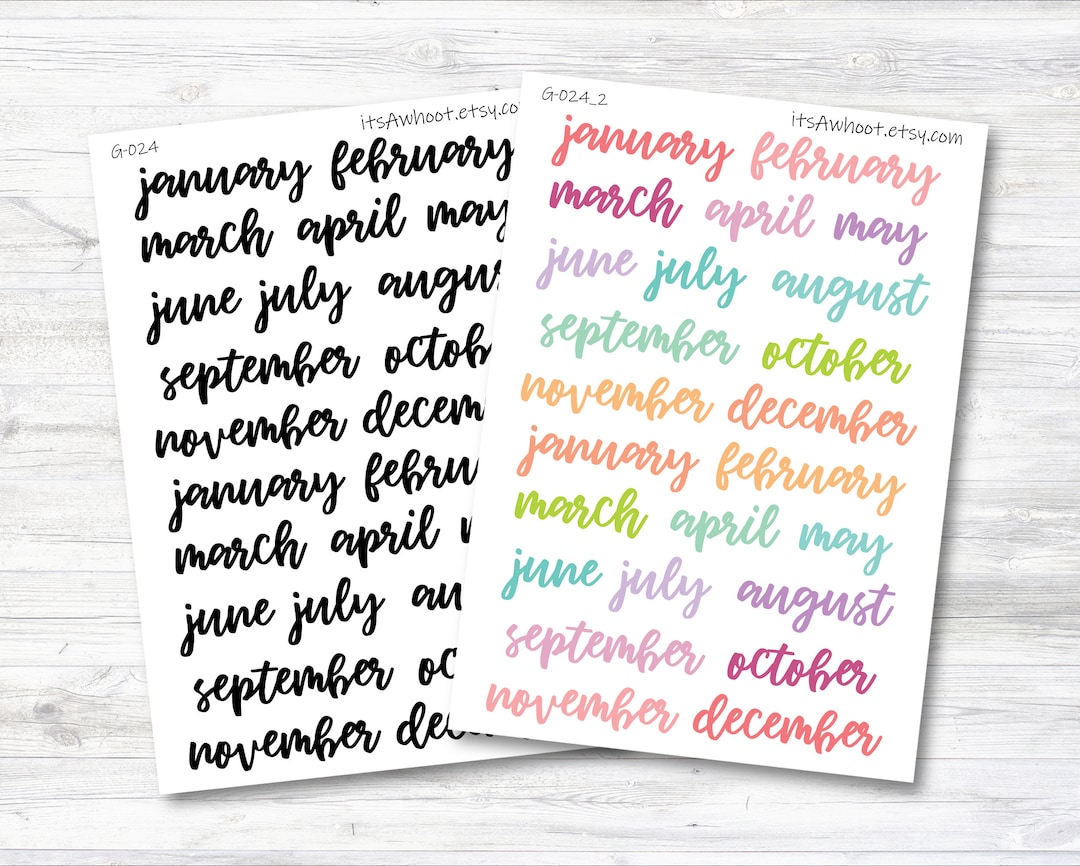 G-024
itsAwhoot.etsy.co
january february
march april may
june july augus
september octob
november decem
january febru
march april
june july au
september oc
november dec
G-024_2
itsAwhoot.etsy.com
january february
march april may
june july august
september october
november december
january february
march april may
june july august
september october
november december